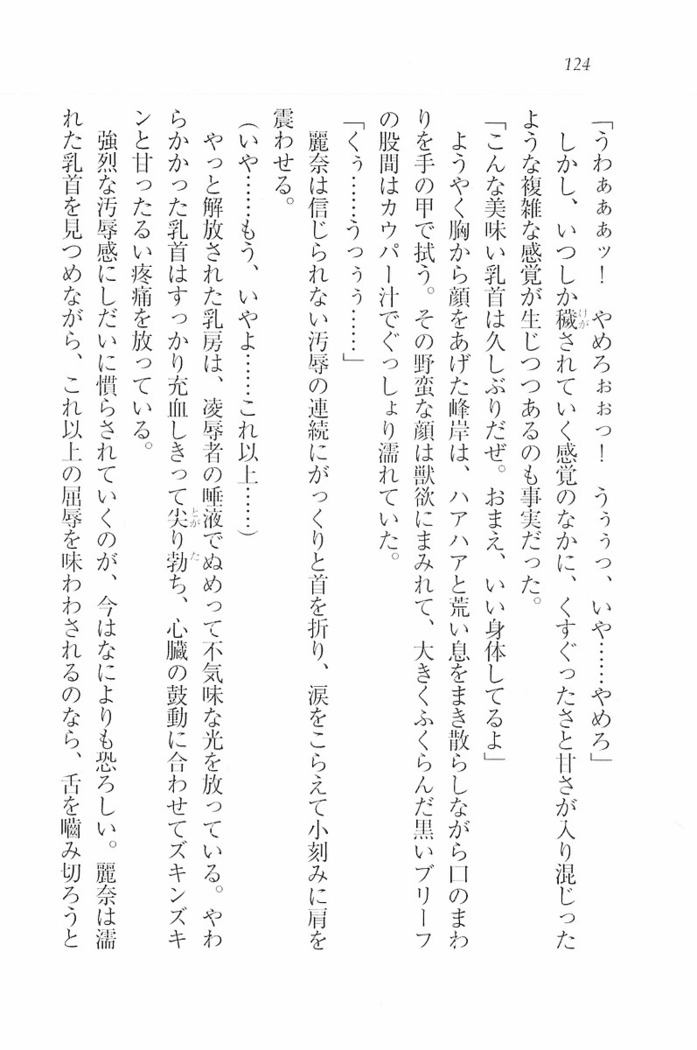 124
「うわぁぁぁッ！　やめろぉぉっ！　うぅぅっ、いや……やめろ」
しかし、いつしか穢されていく感覚のなかに、くすぐったさと甘さが入り混じった
ような複雑な感覚が生じつつあるのも事実だった。
「こんな美味い乳首は久しぶりだぜ。おまえ、いい身体してるよ」
ようやく胸から顔をあげた峰岸は、ハアハアと荒い息をまき散らしながら口のまわ
りを手の甲で拭う。その野蛮な顔は獣欲にまみれて、大きくふくらんだ黒いブリーフ
の股間はカウパー汁でぐっしょり濡れていた。
「くぅ……うっぅぅ……」
麗奈は信じられない汚辱の連続にがっくりと首を折り、涙をこらえて小刻みに肩を
震わせる。
（いや……もう、いやよ……これ以上……）
やっと解放された乳房は、凌辱者の唾液でぬめって不気味な光を放っている。やわ
らかかった乳首はすっかり充血しきって尖り勃ち、心臓の鼓動に合わせてズキンズキ
ンと甘ったるい疼痛を放っている。
強烈な汚辱感にしだいに慣らされていくのが、今はなによりも恐ろしい。麗奈は濡
れた乳首を見つめながら、これ以上の屈辱を味わわされるのなら、舌を嚙み切ろうと